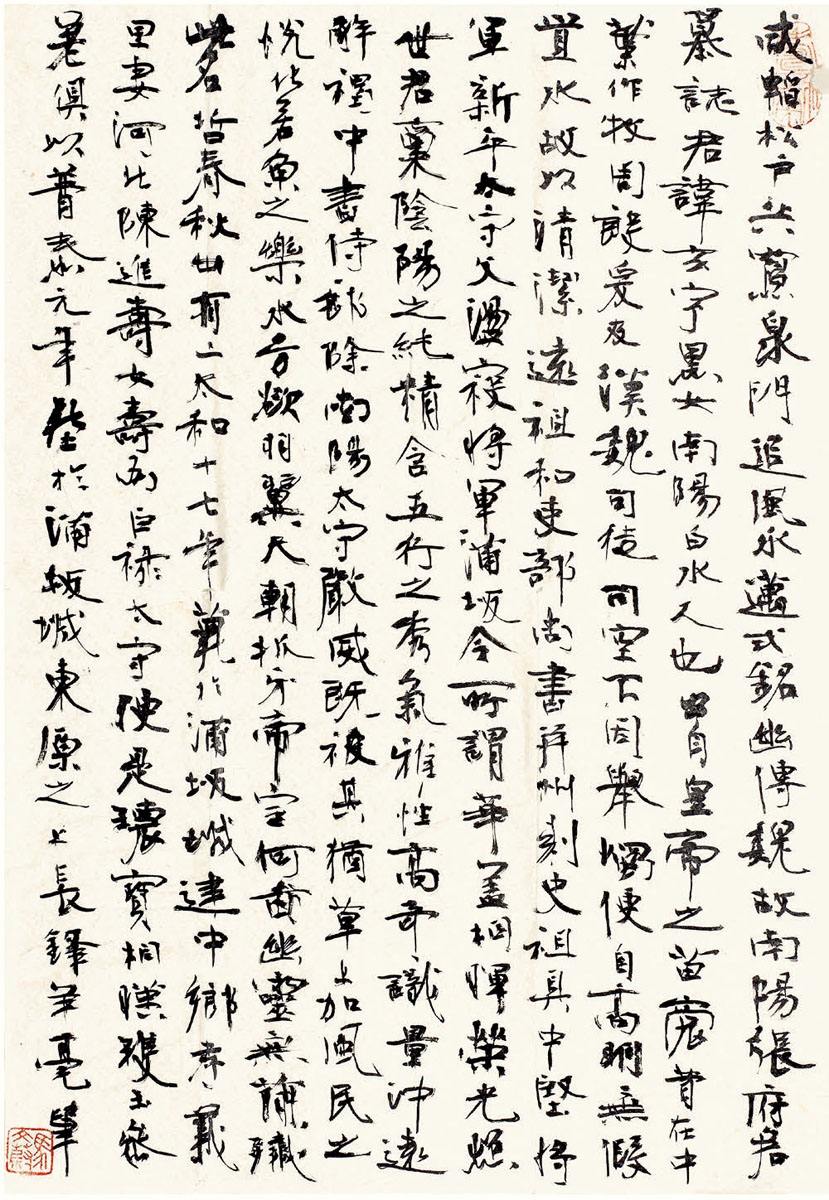 咸韜松戶共寢泉門追風永邁式銘幽傳魏故南陽張府君
墓誌君諱玄字黑女南陽白水人也出自皇帝之苗裔昔在中
葉作牧周殷爰及漢魏司徒司空不因舉燭便自高明無假
置水故以清潔遠祖和吏部尚書并州刺史祖具中堅將
軍新平太守父盪寇將軍蒲坂令所謂華蓋相暉榮光照
世君稟陰陽之純精含五行之秀氣雅性高奇識量沖遠
解褐中書侍郎除南陽太守嚴威既被其猶草上加風民之
悅化若魚之樂水方欲羽翼天朝抓牙帝室何啚幽靈無簡殲
此名哲春秋卅有二太和十七年薨於蒲坂城建中鄉孝義
里妻河北陳進壽女壽為巨祿太守便是瓌寶相暎瓊玉參
差俱以普泰元年葬於蒲坂城東原之上長鋒羊毫筆